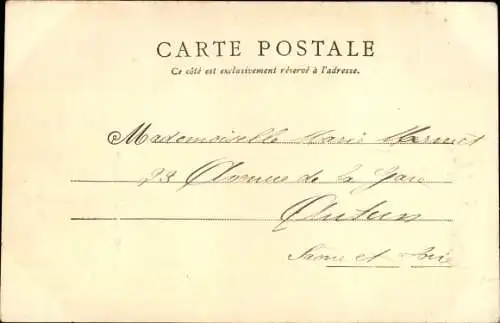 CARTE POSTALE
Ce côté est exclusivement réservé à l'adresse.
Mademoiselle Marie
23 Avenue de la Gare
Autun
Saone et Loire